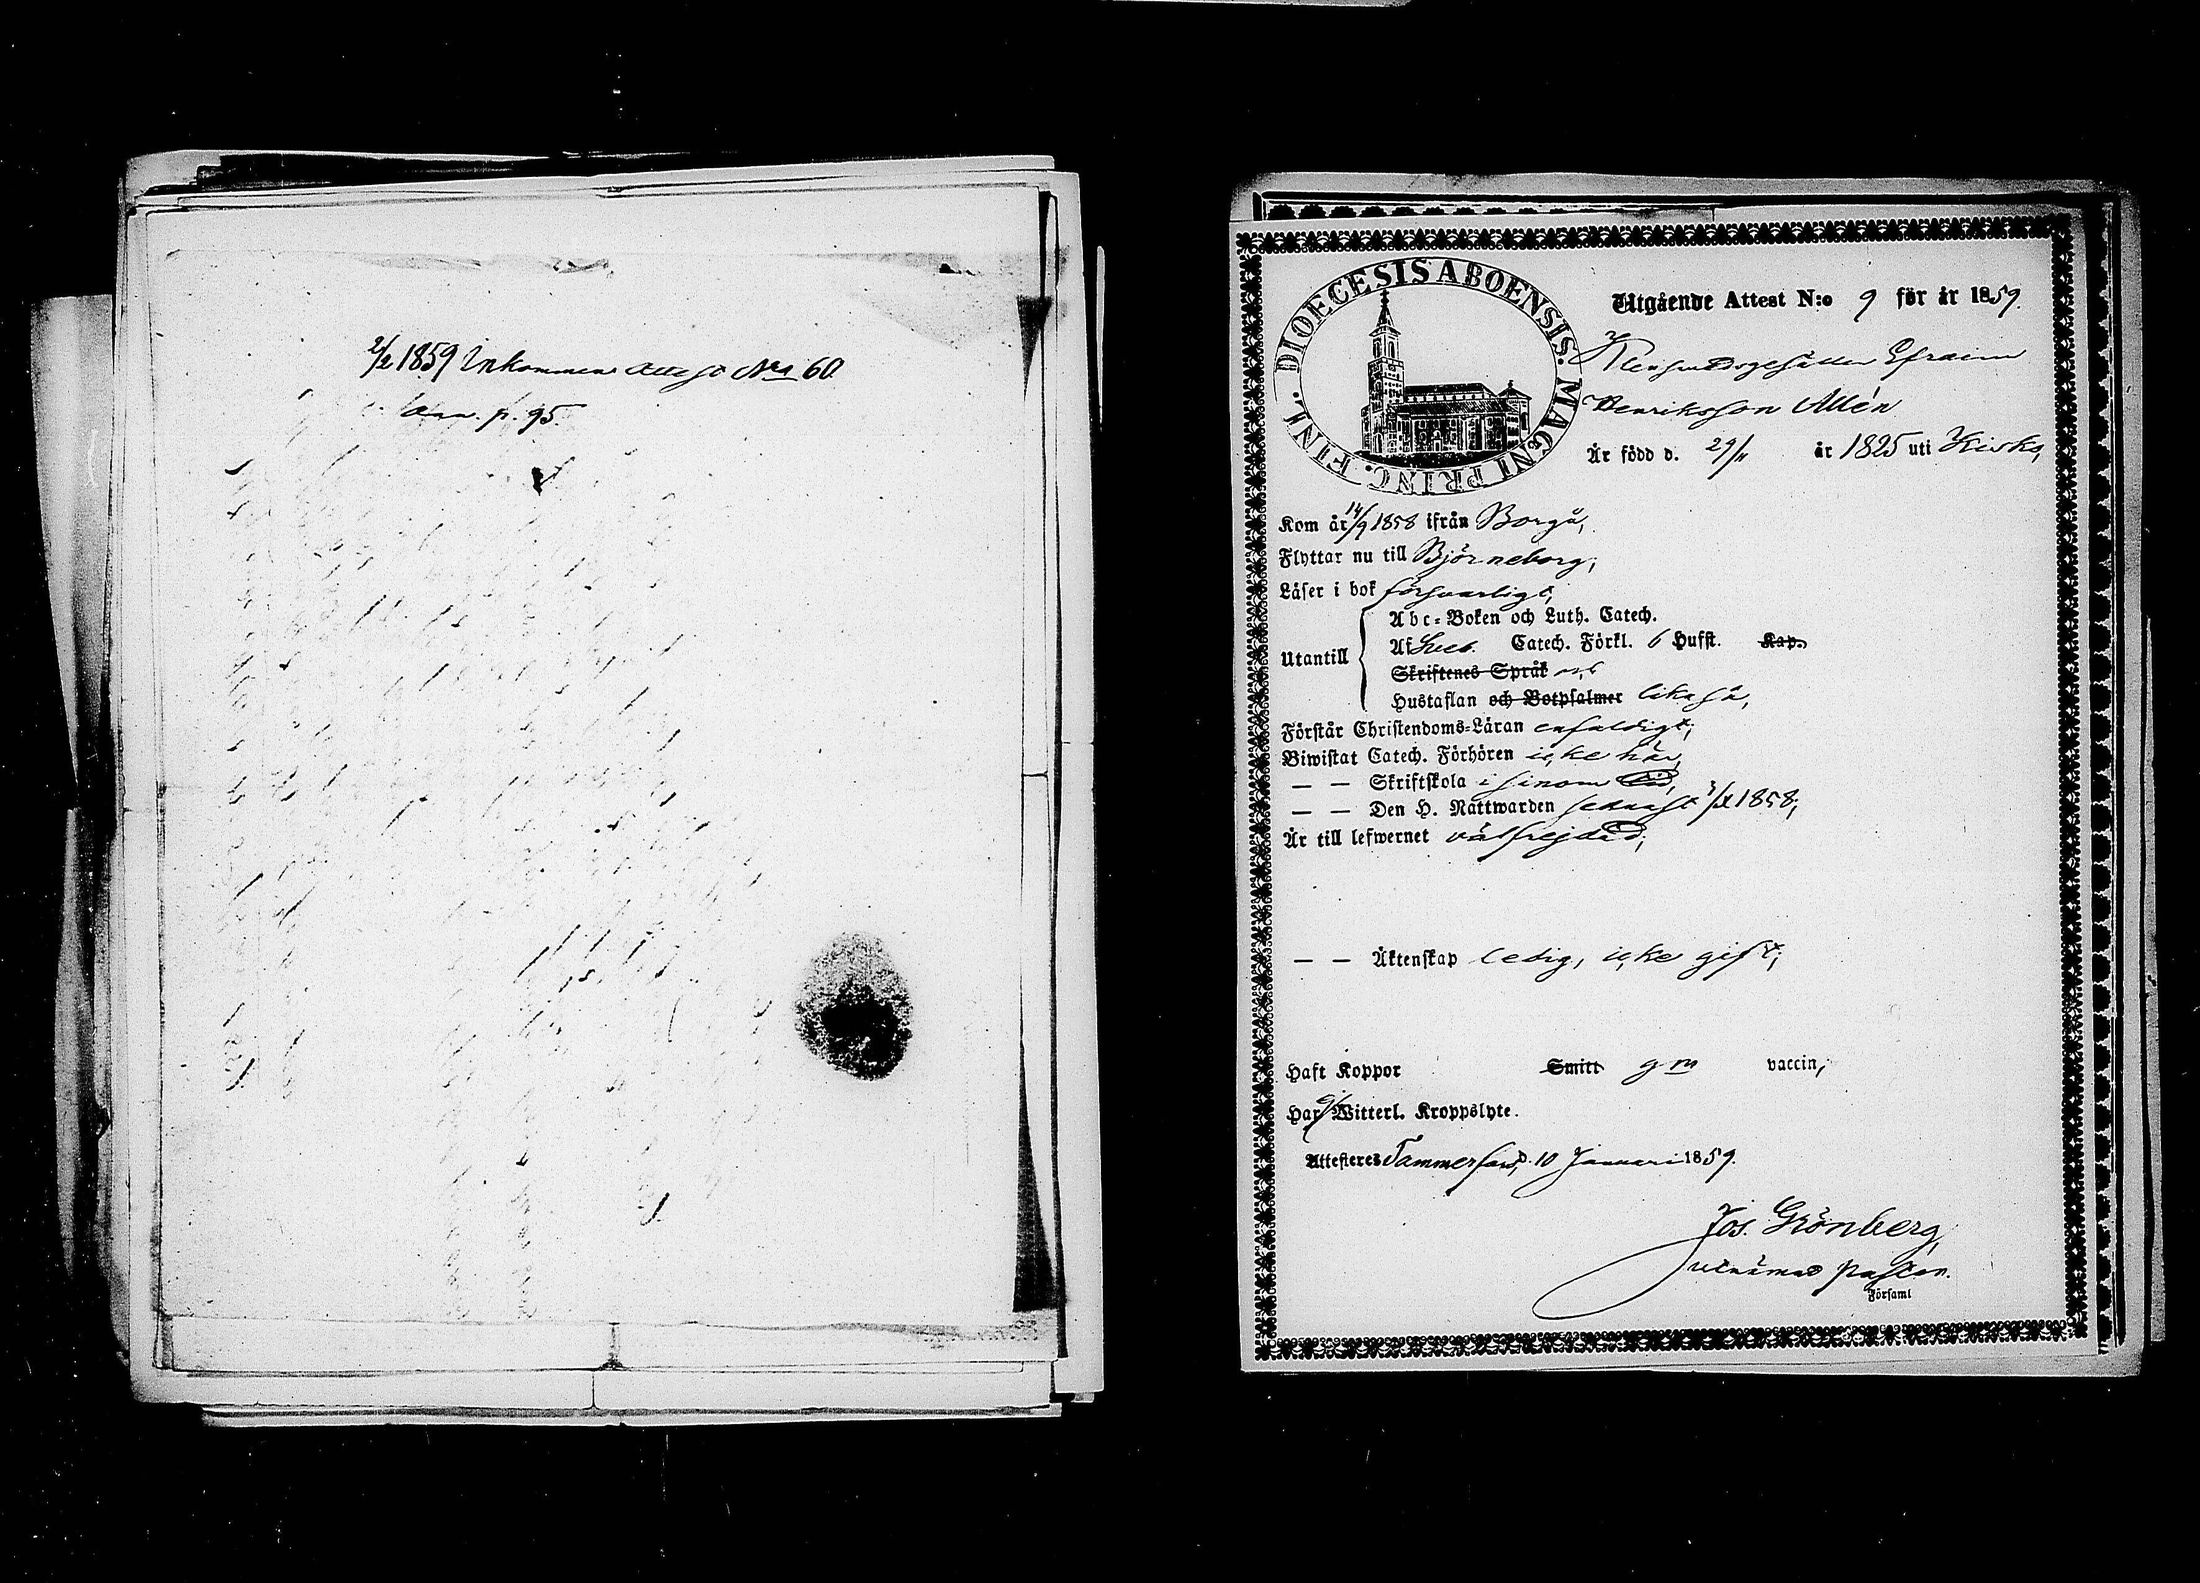 2/2 1859 Inkommen Attest No 60
Ann. p. 95.
DIOECESIS ABOENSIS. MAGNI PRINC. FINL.
Utgående Attest N:o 9 för år 1859.
Klensmedsgesällen Efraim
Henriksson Allén
Är född d. 29/11 år 1825 uti Kisko,
Kom år 14/9 1858 ifrån Borgå,
Flyttar nu till Björneborg,
Läser i bok försvarligt,
Utantill
Abc-Boken och Luth. Catech.
Af Sveb. Catech. Förkl. 6 Hufst. Kap.
Skriftenes Språk och
Hustaflan och Botpsalmer lika så,
Förstår Christendoms-Läran enfaldigt,
Biwistat Catech. Förhören icke här,
— — Skriftskola i sinom tid,
— — Den H. Nattwarden senast 1858;
Är till lefwernet välfrejdad,
— — Äktenskap ledig, icke gift,
Haft Koppor Smitt g m vaccin,
Har ej Witterl. Kroppslyte.
Attesteres Tammerfors, d. 10 Januari 1859.
Jos. Grönberg,
utnämnd pastor.
Församl